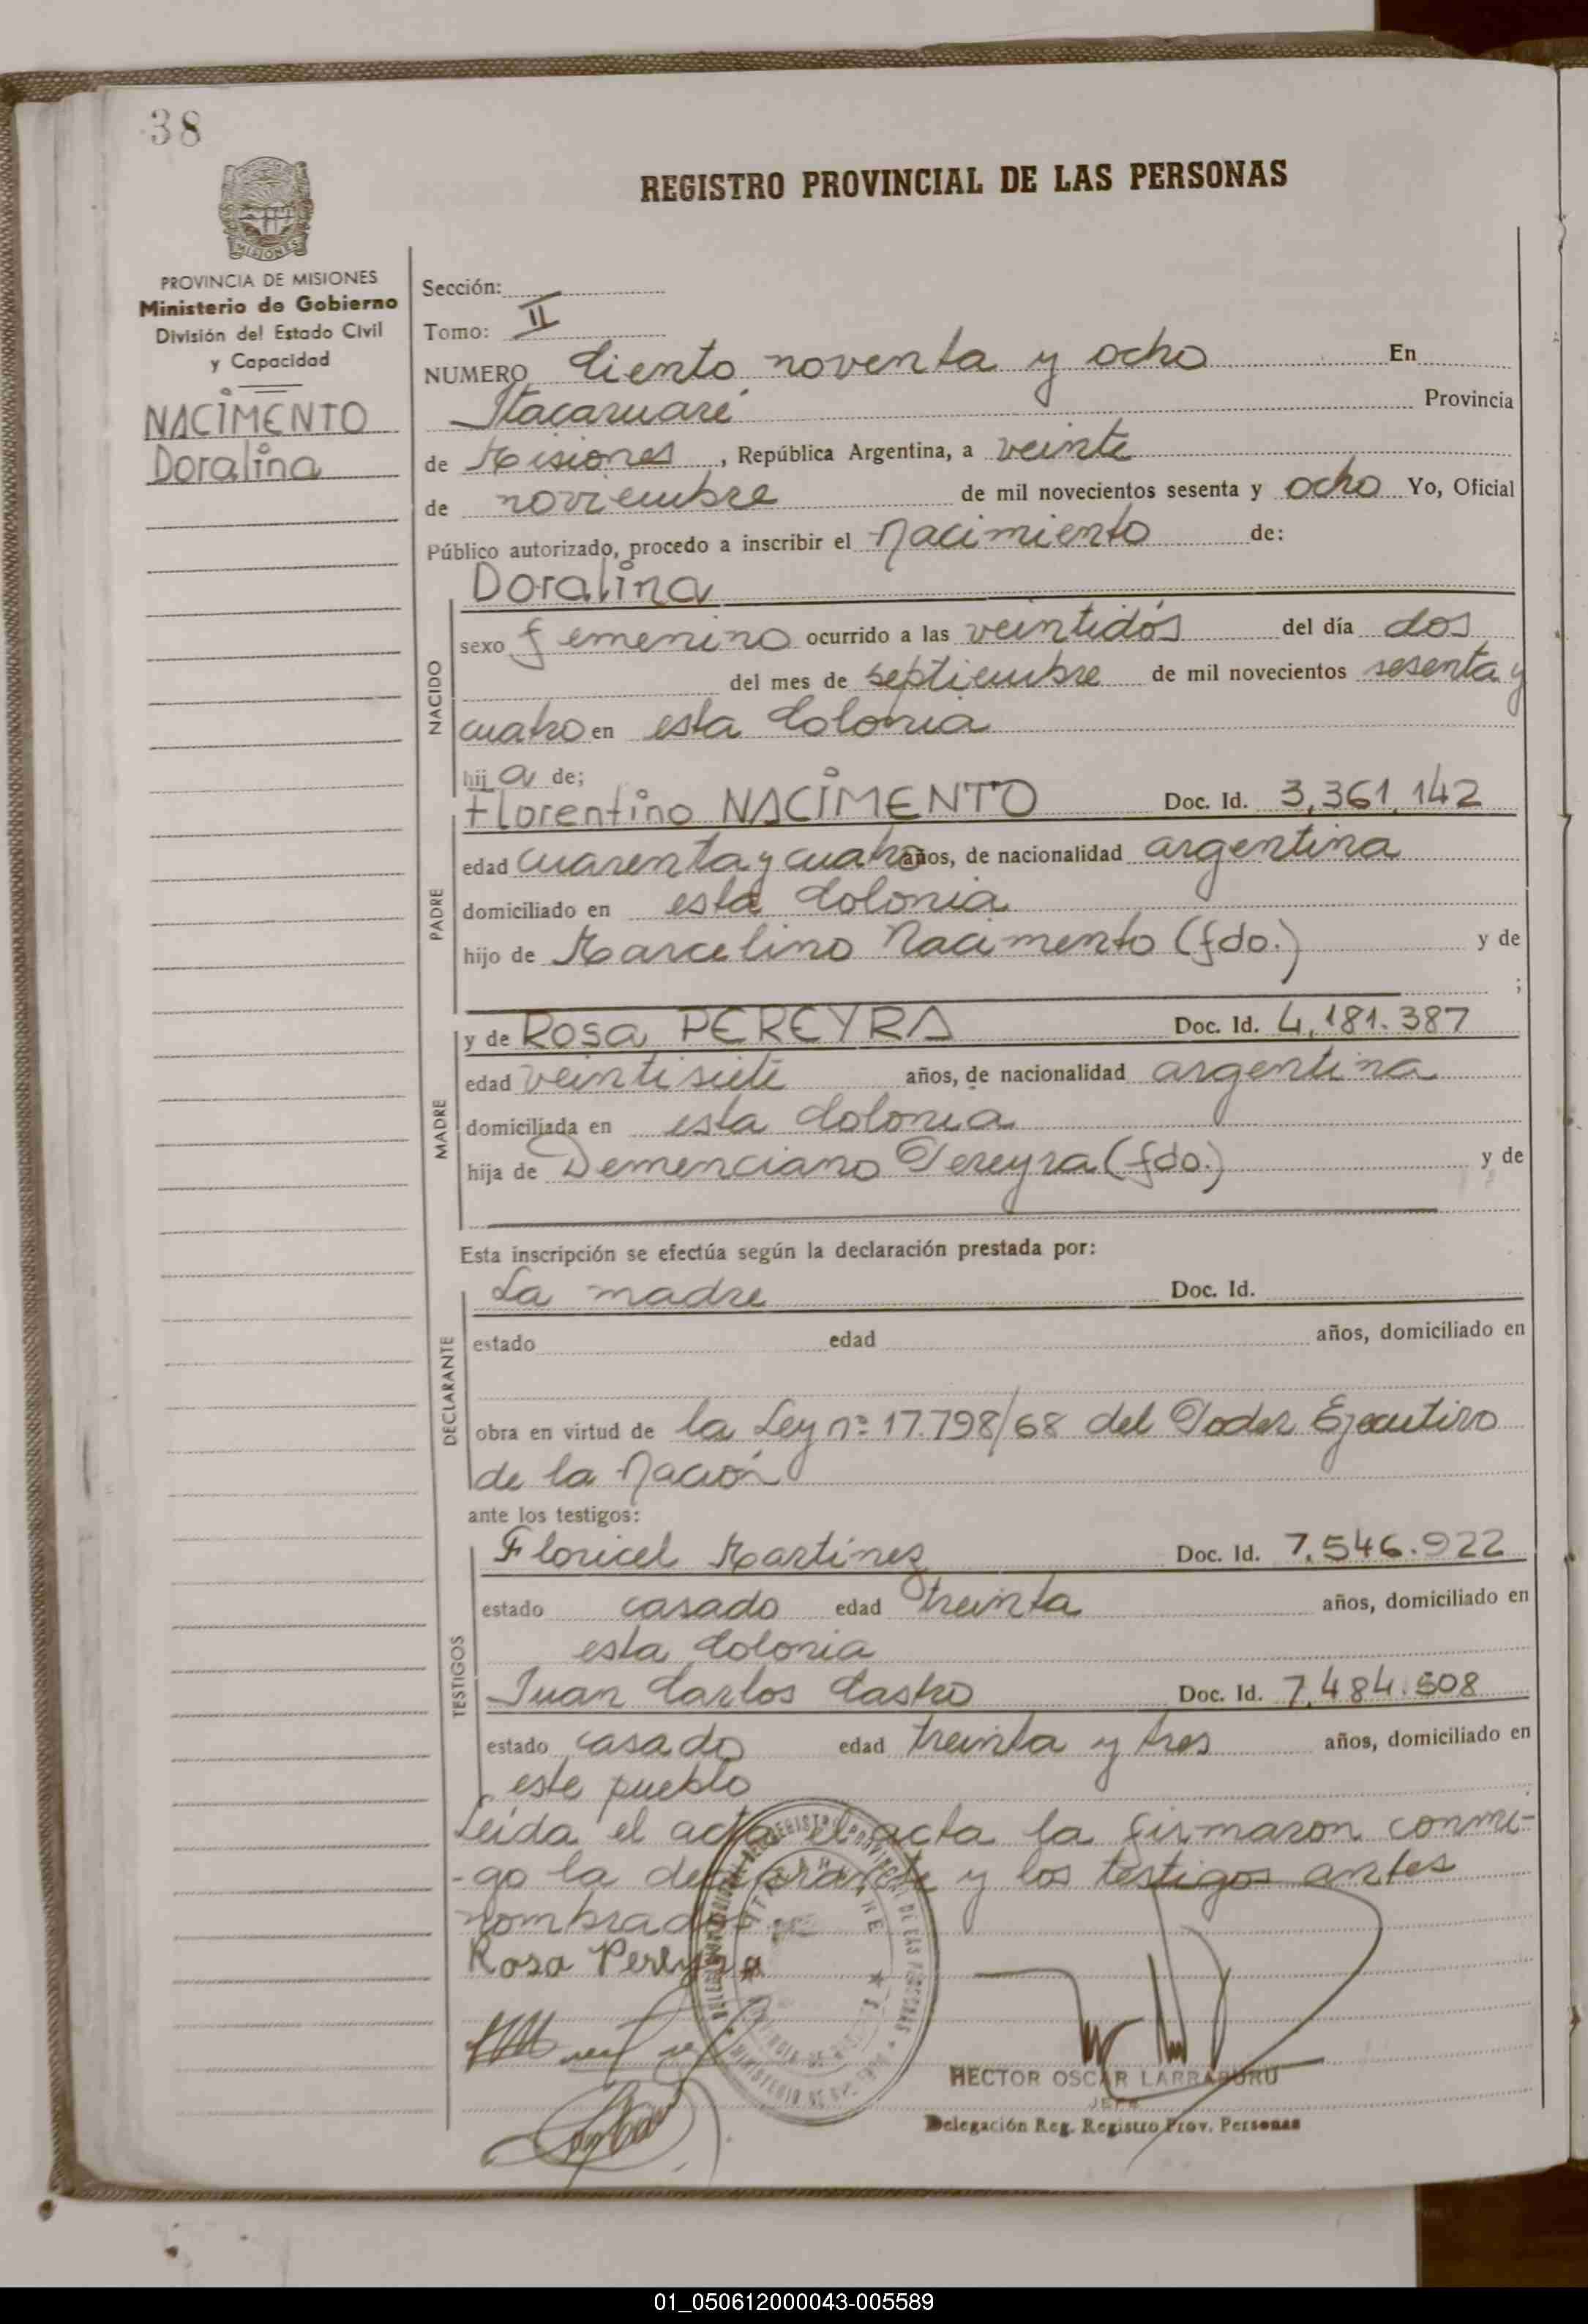 38
REGISTRO PROVINCIAL DE LAS PERSONAS
MISIONES
PROVINCIA DE MISIONES
Ministerio de Gobierno
División del Estado Civil
y Capacidad
NACIMENTO
Doralina
Sección:
Tomo: II
NUMERO Ciento noventa y ocho En
Itacaruaré Provincia
de Misiones, República Argentina, a veinte
de noviembre de mil novecientos sesenta y ocho Yo, Oficial
Público autorizado, procedo a inscribir el Nacimiento de:
Doralina
NACIDO
sexo femenino ocurrido a las veintidós del día dos
del mes de septiembre de mil novecientos sesenta y
cuatro en esta Colonia
hija de;
Florentino NACIMENTO Doc. Id. 3,361,142
PADRE
edad cuarenta y cuatro años, de nacionalidad argentina
domiciliado en esta Colonia
hijo de Marcelino Nacimento (fdo.) y de
;
y de Rosa PEREYRA Doc. Id. 4,181.387
MADRE
edad veintisiete años, de nacionalidad argentina
domiciliada en esta Colonia
hija de Demenciano Pereyra (fdo.) y de
Esta inscripción se efectúa según la declaración prestada por:
La madre Doc. Id.
DECLARANTE
estado edad años, domiciliado en
obra en virtud de la Ley nº 17.798/68 del Poder Ejecutivo
de la Nación
ante los testigos:
Floricel Martinez Doc. Id. 7.546.922
TESTIGOS
estado casado edad treinta años, domiciliado en
esta Colonia
Juan Carlos Castro Doc. Id. 7,484.508
estado casado edad treinta y tres años, domiciliado en
este pueblo
Leida el acta el acta la firmaron conmi-
-go la declarante y los testigos antes
nombrados
Rosa Pereyra
HECTOR OSCAR LARRABURU
JEFE
Delegación Reg. Registro Prov. Personas
01_050612000043-005589